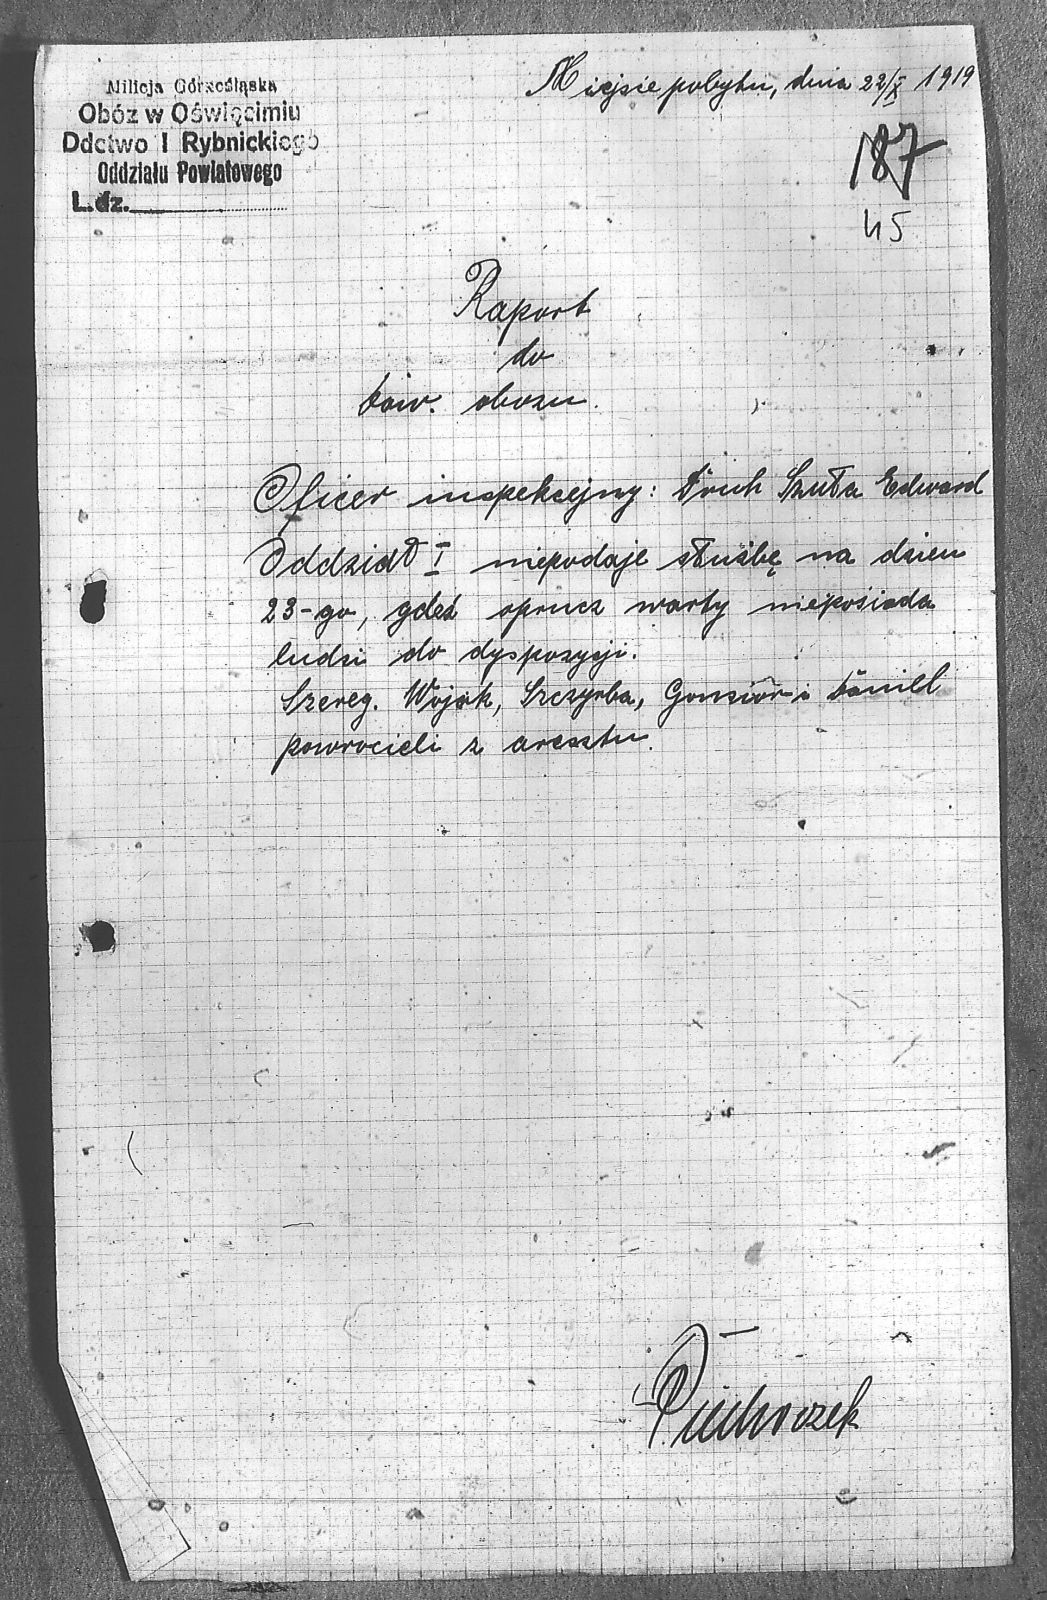 Milicja Górnośląska
Obóz w Oświęcimiu
Ddctwo I Rybnickiego
Oddziału Powiatowego
L.dz.
Miejsce pobytu, dnia 22/X 1919
187
45
Raport
do
dow. obozu.
Oficer inspekcejny: Druh Szuła Edward
Oddział I niepodaje służbę na dzien
23-go, gdeż oprucz warty nieposiada
ludzi do dyspozycji.
Szereg. Wojak, Szczyrba, Gonsior i
powrocieli z aresztu.
Piechoczek